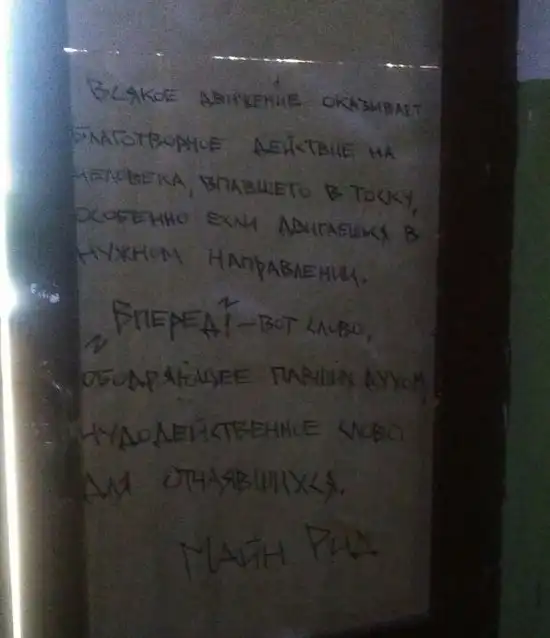 Всякое движение оказывает
благотворное действие на
человека, впавшего в тоску,
особенно если двигаешься в
нужном направлении.
"Вперед!" – вот слово,
ободряющее павших духом,
чудодейственное слово
для отчаявшихся.
Майн Рид